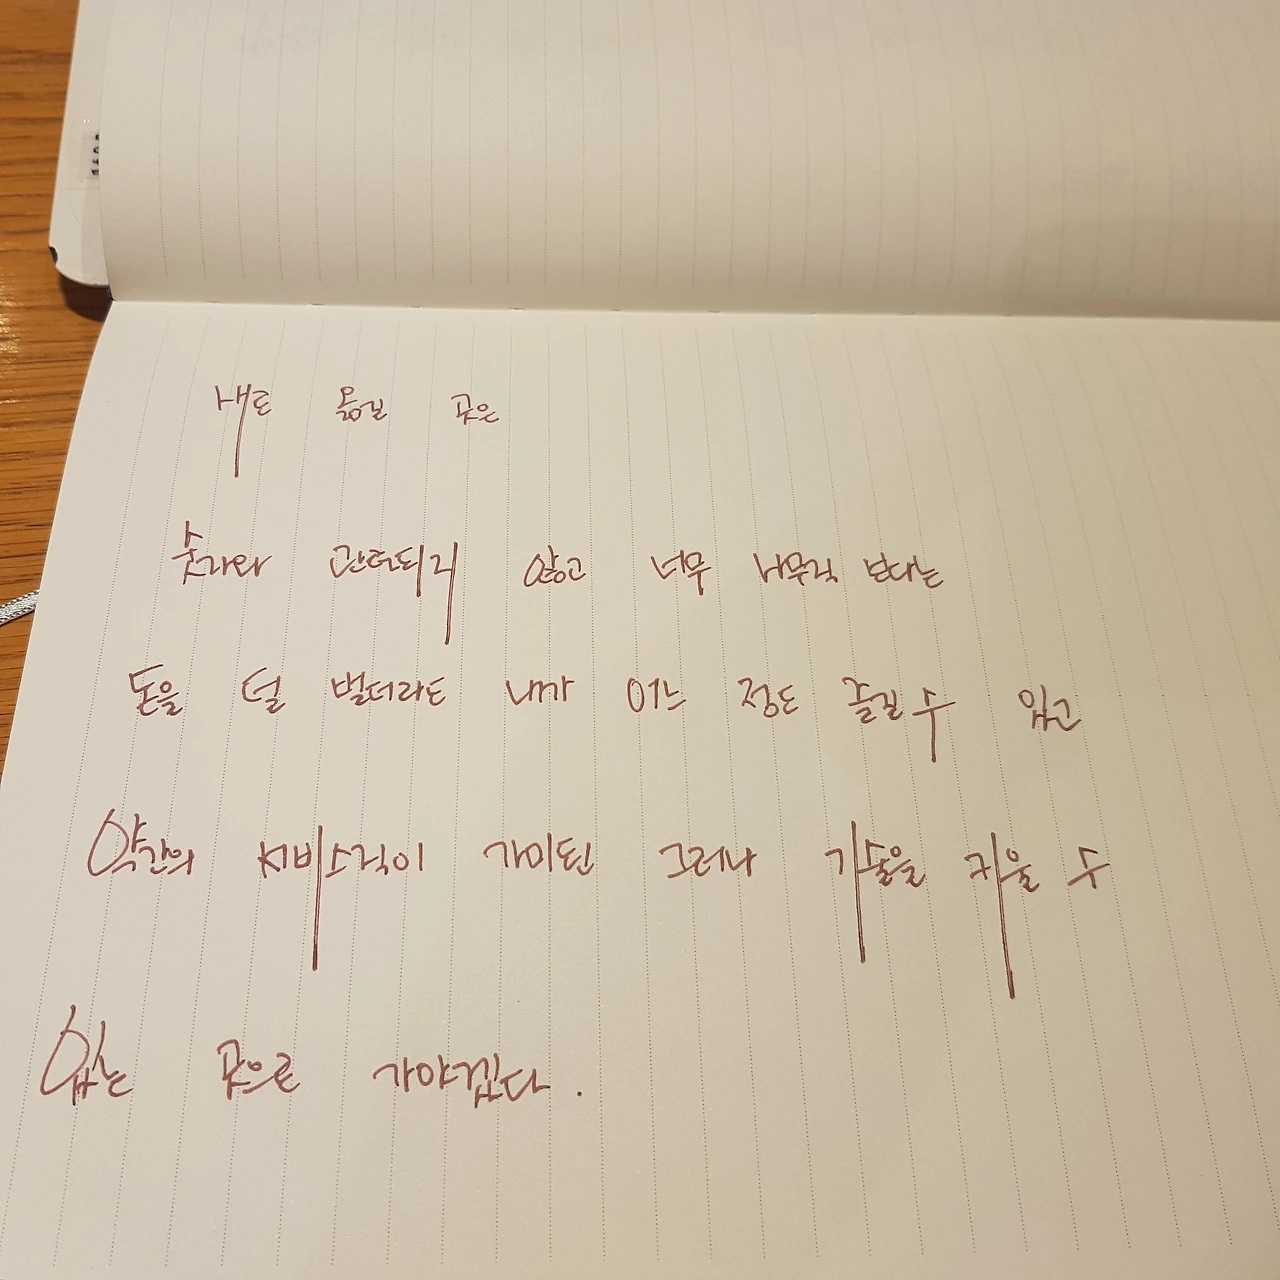 새로 옮길 곳은
숫자와 관련되지 않고 너무 사무직 보다는
돈을 덜 벌더라도 내가 어느 정도 즐길 수 있고
약간의 서비스직이 가미된 그러나 기술을 키울 수
있는 곳으로 가야겠다.